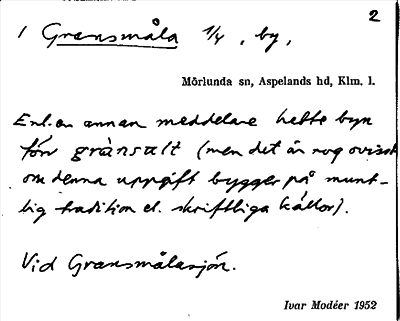 2
1 Gransmåla 1/4, by,
Mörlunda sn, Aspelands hd, Klm. l.
Enl. en annan meddelare hette byn
förr gränsalt (men det är nog ovisst
om denna uppgift bygger på munt-
lig tradition el. skriftliga källor).
Vid Gransmålasjön.
Ivar Modéer 1952